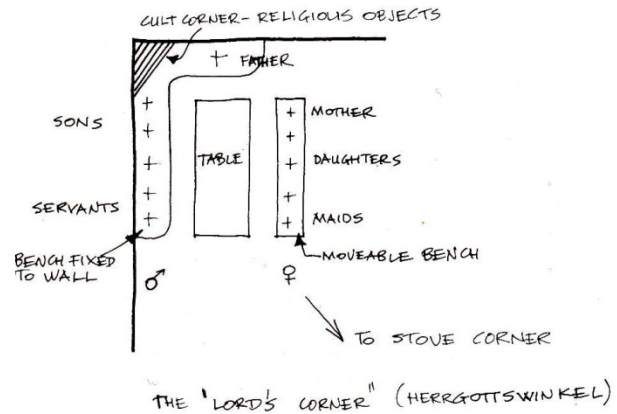 CULT CORNER - RELIGIOUS OBJECTS
+ FATHER
SONS
MOTHER
TABLE
DAUGHTERS
SERVANTS
MAIDS
BENCH FIXED
TO WALL
MOVEABLE BENCH
♂
♀
TO STOVE CORNER
THE 'LORD'S CORNER" (HERRGOTTSWINKEL)